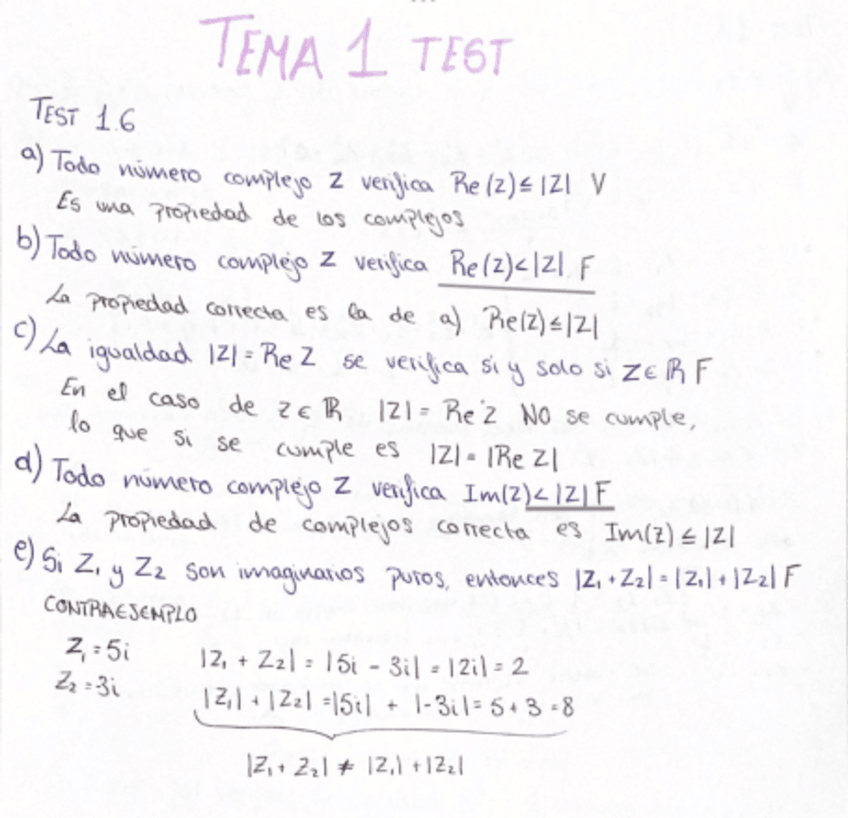 TEMA 1 TEST
TEST 1.6
a) Todo número complejo Z verifica Re(z)≤|Z| V
Es una propiedad de los complejos
b) Todo número complejo Z verifica Re(z)<|Z| F
La propiedad correcta es la de a) Re(z)≤|Z|
c) La igualdad |Z|=Re Z se verifica si y solo si Z∈ℝ F
En el caso de z∈ℝ |Z|= Re z NO se cumple,
lo que si se cumple es |Z|=|Re Z|
d) Todo número complejo Z verifica Im(z)<|Z| F
La propiedad de complejos correcta es Im(z)≤|Z|
e) Si Z₁ y Z₂ son imaginarios puros, entonces |Z₁+Z₂|=|Z₁|+|Z₂| F
CONTRAEJEMPLO
Z₁=5i |Z₁+Z₂|=|5i-3i|=|2i|=2
Z₂=3i |Z₁|+|Z₂|=|5i| + |-3i|=5+3=8
|Z₁+Z₂|≠|Z₁|+|Z₂|